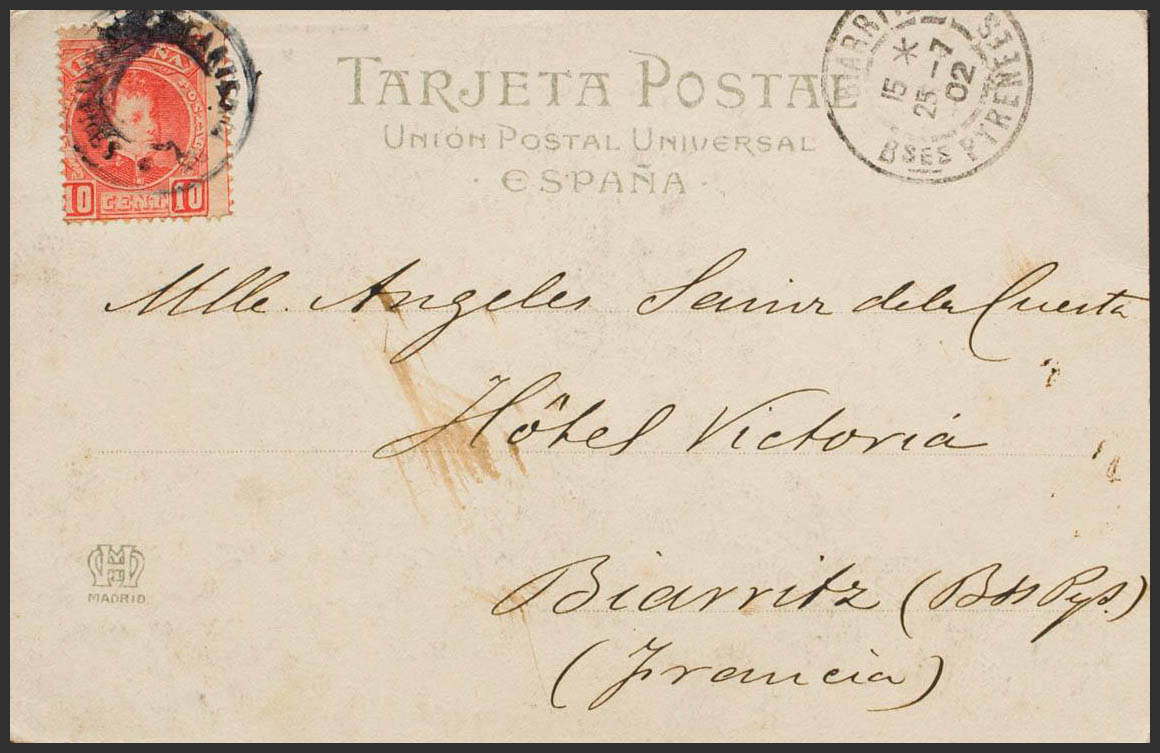 TARJETA POSTAL
UNIÓN POSTAL UNIVERSAL
· ESPAÑA ·
10 CENT 10
BIARRITZ
15 *
25 -7
02
BSES PYRENEES
Mlle. Angeles Sainz de la Cuesta
Hôtel Victoria
Biarritz (Bss Pys.)
(Francia)
MADRID